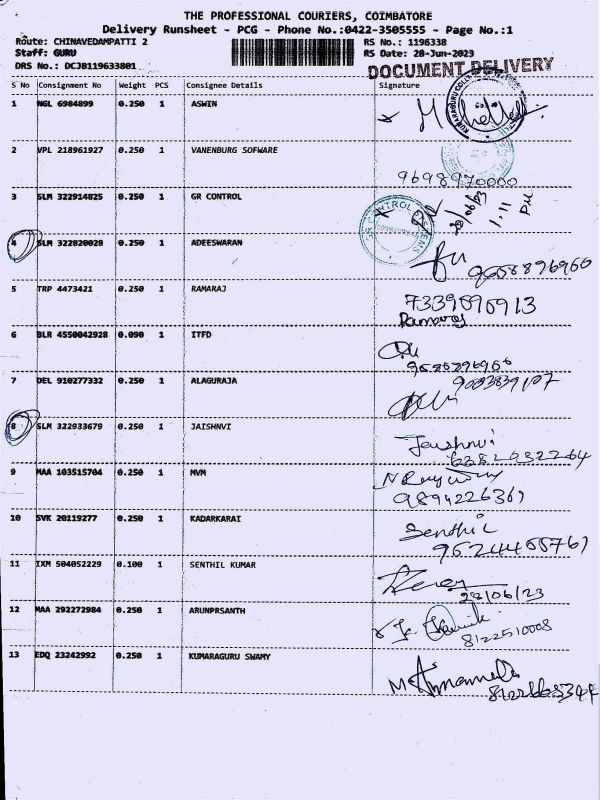 THE PROFESSIONAL COURIERS, COIMBATORE
Delivery Runsheet - PCG - Phone No.:0422-3505555 - Page No.:1
Route: CHINAVEDAMPATTI 2 RS No.: 1196338
Staff: GURU RS Date: 28-Jun-2023
DRS No.: DCJB119633801 DOCUMENT DELIVERY
S No Consignment No Weight PCS Consignee Details Signature
1 NGL 6984899 0.250 1 ASWIN
2 VPL 218961927 0.250 1 VANENBURG SOFWARE
9698970000
3 SLM 322914825 0.250 1 GR CONTROL
28/06/23 1.11 PM
4 SLM 322820020 0.250 1 ADEESWARAN
5 TRP 4473421 0.250 1 RAMARAJ
Ramaraj
6 BLR 4550042928 0.090 1 ITFD
7 DEL 910277332 0.250 1 ALAGURAJA
8 SLM 322933679 0.250 1 JAISHNVI
Jaishnvi
9 MAA 103515704 0.250 1 MVM
9894226369
10 SVK 20119277 0.250 1 KADARKARAI
Senthil
11 IXM 504052229 0.100 1 SENTHIL KUMAR
28/06/23
12 MAA 292272984 0.250 1 ARUNPRSANTH
8122510008
13 EDQ 23242992 0.250 1 KUMARAGURU SWAMY